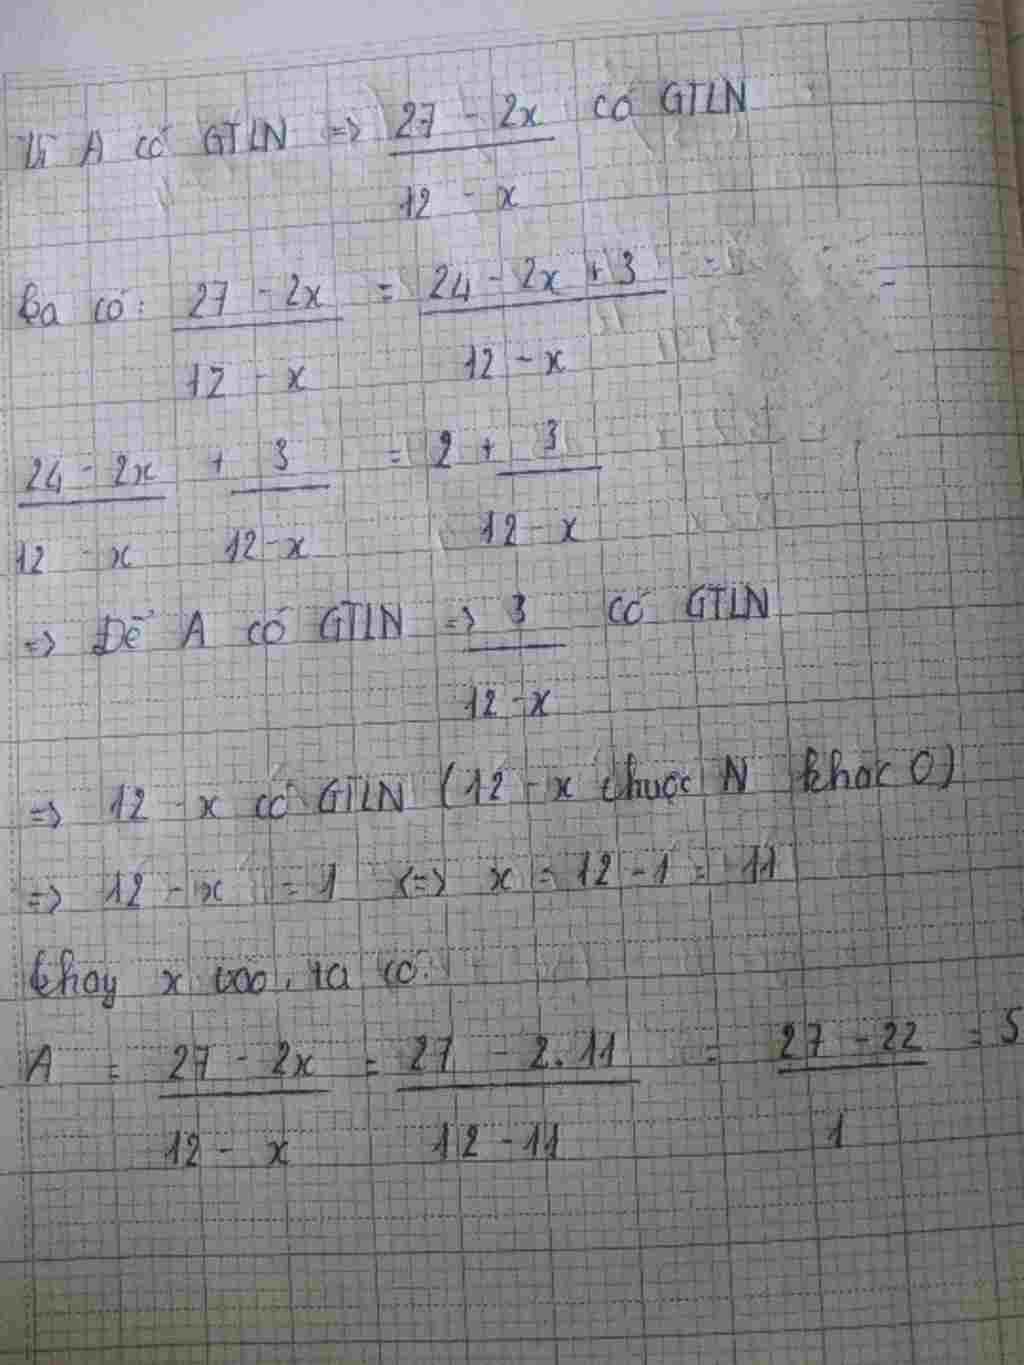 Vì A có GTLN => 27 - 2x / 12 - x có GTLN
Ta có: 27 - 2x / 12 - x = 24 - 2x + 3 / 12 - x =
24 - 2x / 12 - x + 3 / 12 - x = 2 + 3 / 12 - x
=> Để A có GTLN => 3 / 12 - x có GTLN
=> 12 - x có GTLN (12 - x thuộc N khác 0)
=> 12 - x = 1 <=> x = 12 - 1 = 11
thay x vào, ta có:
A = 27 - 2x / 12 - x = 27 - 2.11 / 12 - 11 = 27 - 22 / 1 = 5